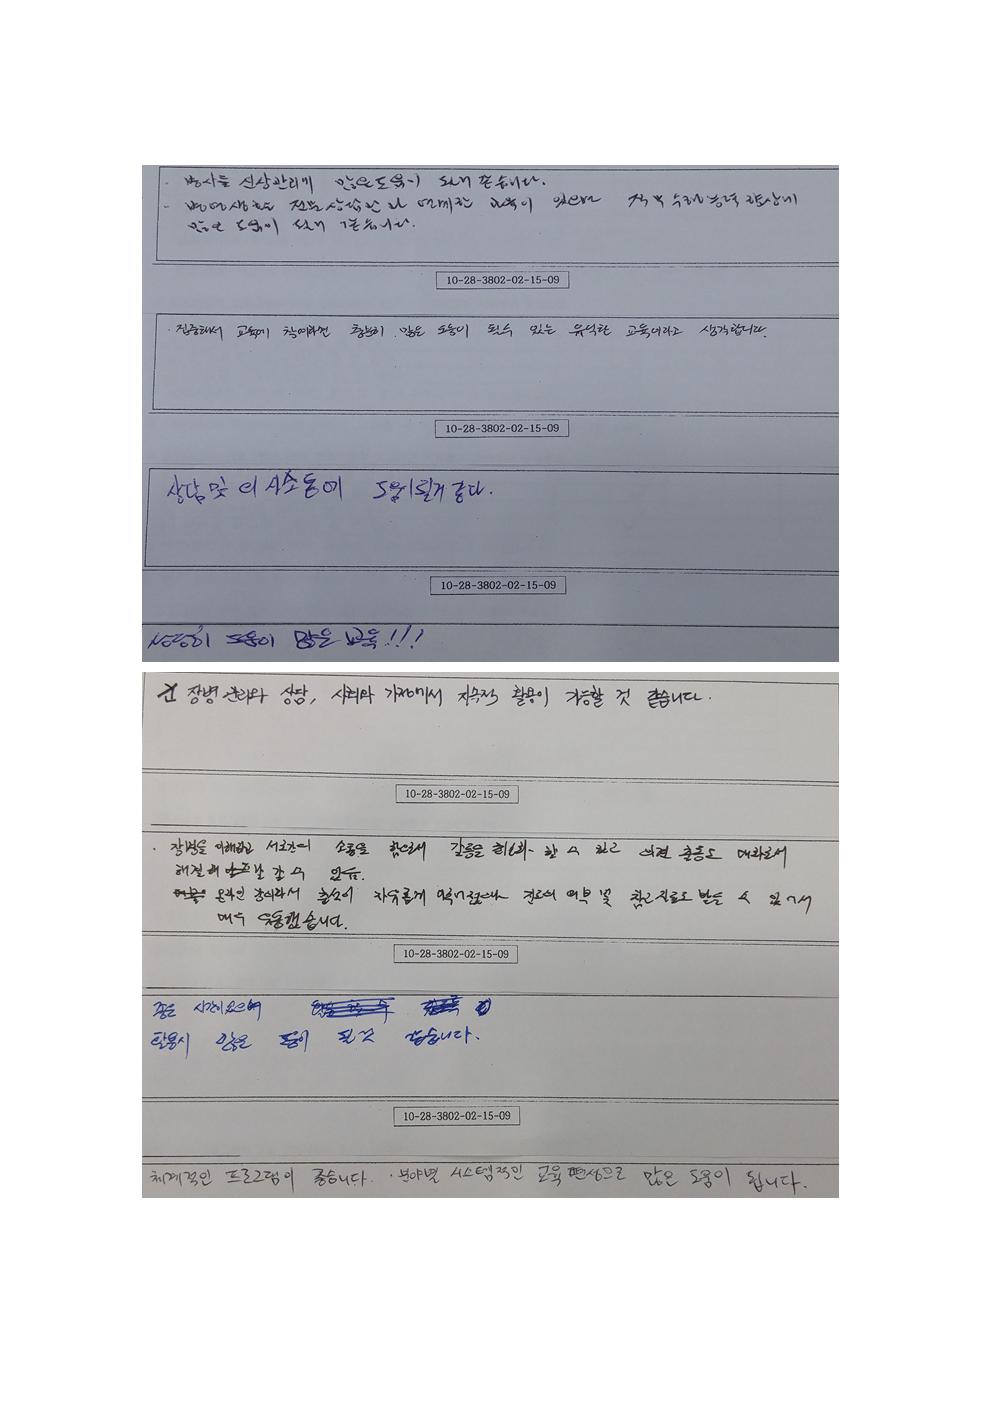 - 병사들 신상관리에 많은 도움이 되리 믿습니다.
- 병영생활 전문상담관과 연계한 교육이 있으며 직무수행능력 향상에
많은 도움이 되리 믿습니다.
10-28-3802-02-15-09
· 집중해서 교육에 참여하면 충분히 많은 도움이 될수 있는 유익한 교육이라고 생각합니다.
10-28-3802-02-15-09
상담 및 의사소통에 도움이될거 같다.
10-28-3802-02-15-09
상당히 도움이 많은 교육!!!
장병관리와 상담, 사회와 가정에서 지속적 활용이 가능할 것 같습니다.
10-28-3802-02-15-09
· 장병을 이해하고 서로간의 소통을 함으로서 갈등을 최소화 할 수 있고 의견 충돌도 대화로서
해결해 나갈 수 있음.
온라인 강의라서 장소에 자유롭게 및 참고자료도 받을 수 있어서
매우 유용했습니다.
10-28-3802-02-15-09
좋은 시간이었으며
활용시 많은 도움이 될 것 같습니다.
10-28-3802-02-15-09
체계적인 프로그램이 좋습니다. · 분야별 시스템적인 교육편성으로 많은 도움이 됩니다.